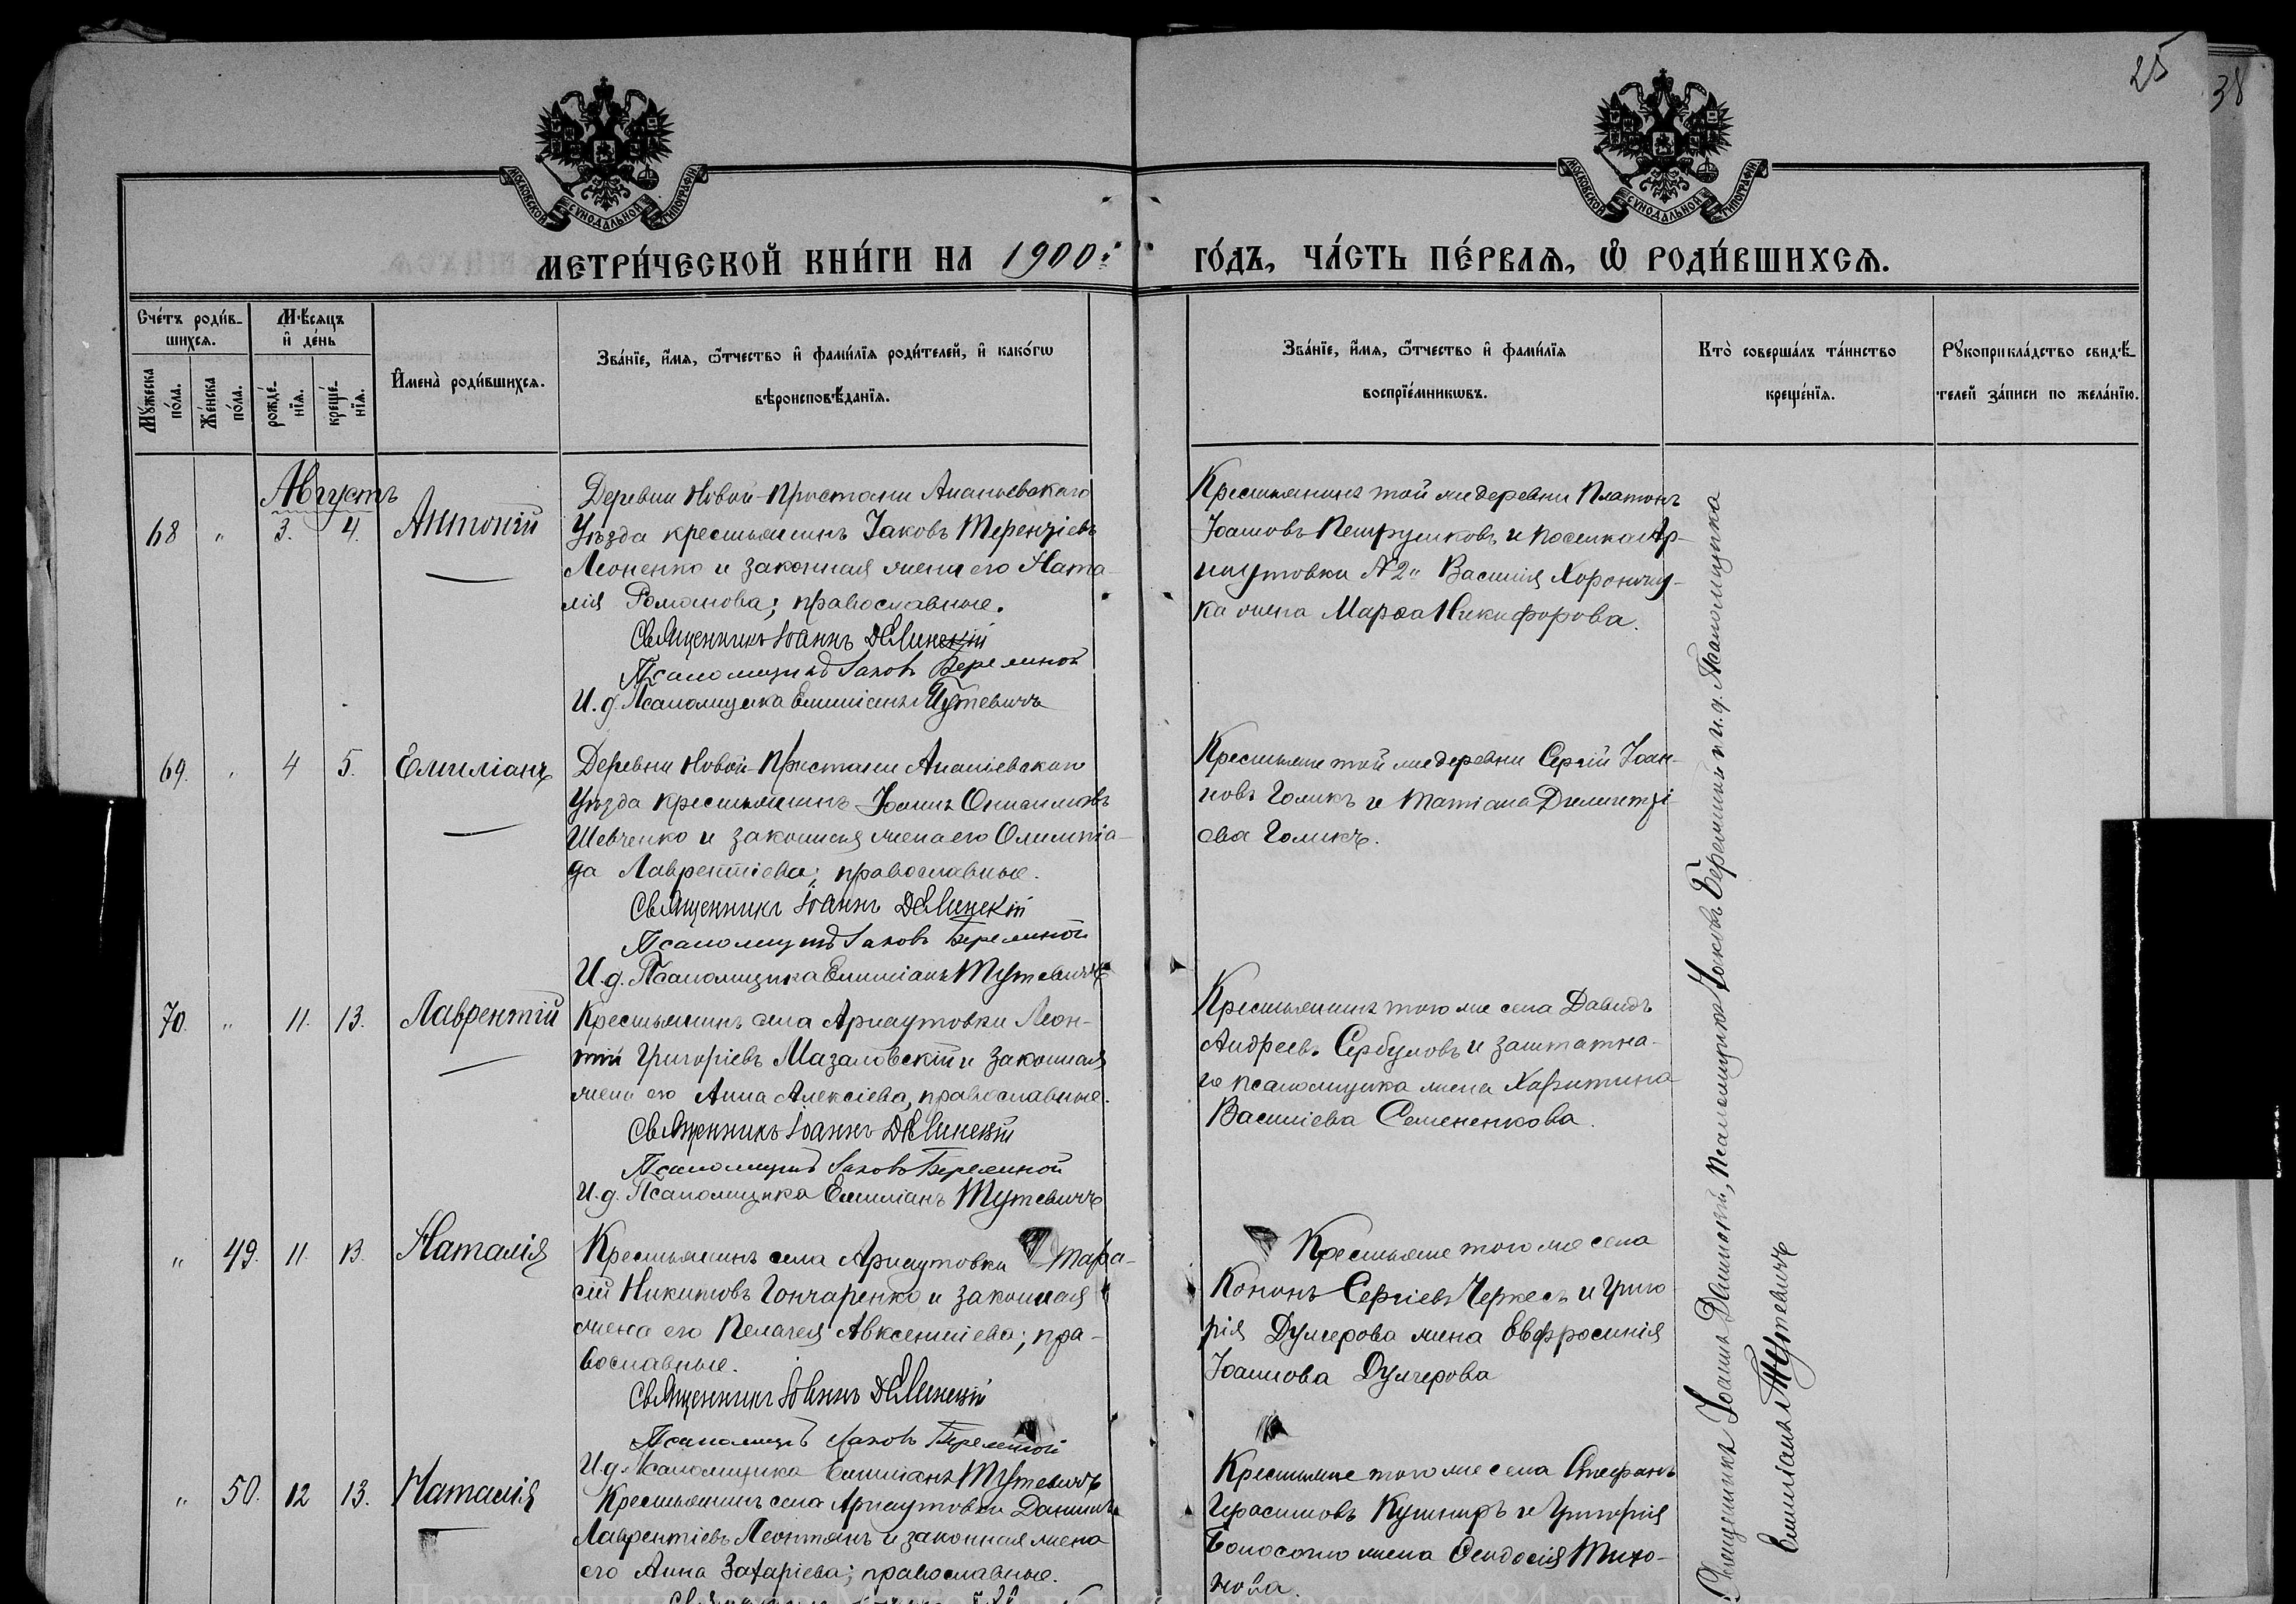 25
38
МОСКОВСКОЙ СѴНОДАЛЬНОЙ ТИПОГРАФІИ
МОСКОВСКОЙ СѴНОДАЛЬНОЙ ТИПОГРАФІИ
МЕТРИ́ЧЕСКОЙ КНИ́ГИ НА 1900 й
ГО́ДЪ, ЧА́СТЬ ПЕ́РВАѦ, Ѡ҆ РОДИ́ВШИХСѦ.
Сче́тъ роди́в-
шихсѧ.
Мꙋ́жеска по́ла.
Же́нска по́ла.
Мѣ́сѧцъ
и҆ де́нь
рожде́-нїѧ.
креще́-нїѧ.
И҆мена̀ роди́вшихсѧ.
Зва́нїе, и҆́мѧ, ѻ҆́тчество и҆ фами́лїѧ роди́телей, и҆ како́гѡ
вѣроисповѣ́данїѧ.
Зва́нїе, и҆́мѧ, ѻ҆́тчество и҆ фами́лїѧ
воспрїе́мникѡвъ.
Кто̀ соверша́лъ та́инство
креще́нїѧ.
Рꙋкоприкла́дство свидѣ́-
телей за́писи по жела́нїю.
Августъ
68 " 3. 4. Антоній
Деревни Новой-Пристани Ананьевскаго
Уѣзда крестьянинъ Іаковъ Терентіевъ
Леоненко и законная жена его Ната-
лія Романова; православные.
Священникъ Іоаннъ Дѣлинскій
Псаломщикъ Іаковъ Беремной
И. д. Псаломщика Емиліанъ Тутевичъ
Крестьянинъ той же деревни Платонъ
Іоанновъ Петрушковъ и поселка Ар-
наутовки №2" Василія Хорончу-
ка жена Марѳа Никифорова.
69. " 4 5. Емиліанъ
Деревни Новой-Пристани Ананіевскаго
Уѣзда крестьянинъ Іоаннъ Онисимовъ
Шевченко и законная жена его Олимпіа-
да Лаврентіева; православные.
Священникъ Іоаннъ Дѣлинскій
Псаломщикъ Іаковъ Беремной
И. д. Псаломщика Емиліанъ Тутевичъ
Крестьяне той же деревни Сергій Іоан-
новъ Голикъ и Татіана Дементі-
ева Голикъ.
70. " 11. 13. Лаврентій
Крестьянинъ села Арнаутовки Леон-
тій Григоріевъ Мазаловскій и законная
жена его Анна Алексіева, православные.
Священникъ Іоаннъ Дѣлинскій
Псаломщикъ Іаковъ Беремной
И. д. Псаломщика Емиліанъ Тутевичъ
Крестьянинъ того же села Давидъ
Андреевъ Сербуловъ и заштатна-
го псаломщика жена Харитина
Василіева Семененкова.
" 49. 11. 13. Наталія
Крестьянинъ села Арнаутовки Тара-
сій Никитовъ Гончаренко и законная
жена его Пелагея Авксентіева; пра-
вославные.
Священникъ Іоаннъ Дѣлинскій
Псаломщикъ Іаковъ Беремной
И. д. Псаломщика Емиліанъ Тутевичъ
Крестьяне того же села
Кононъ Сергіевъ Черкесъ и Григо-
рія Дулгерова жена Евфросинія
Іоаннова Дулгерова
" 50. 12 13. Наталія
Крестьянинъ села Арнаутовки Даніилъ
Лаврентіевъ Леонтянъ и законная жена
его Анна Захаріева; православные.
Крестьяне того же села Стефанъ
Герасимовъ Кушниръ и Григорія
жена Ѳеодосія Тихо-
нова.
Священникъ Іоаннъ Дѣлинскій, псаломщикъ Іаковъ Беремной и и. д. Псаломщика
Емиліанъ Тутевичъ